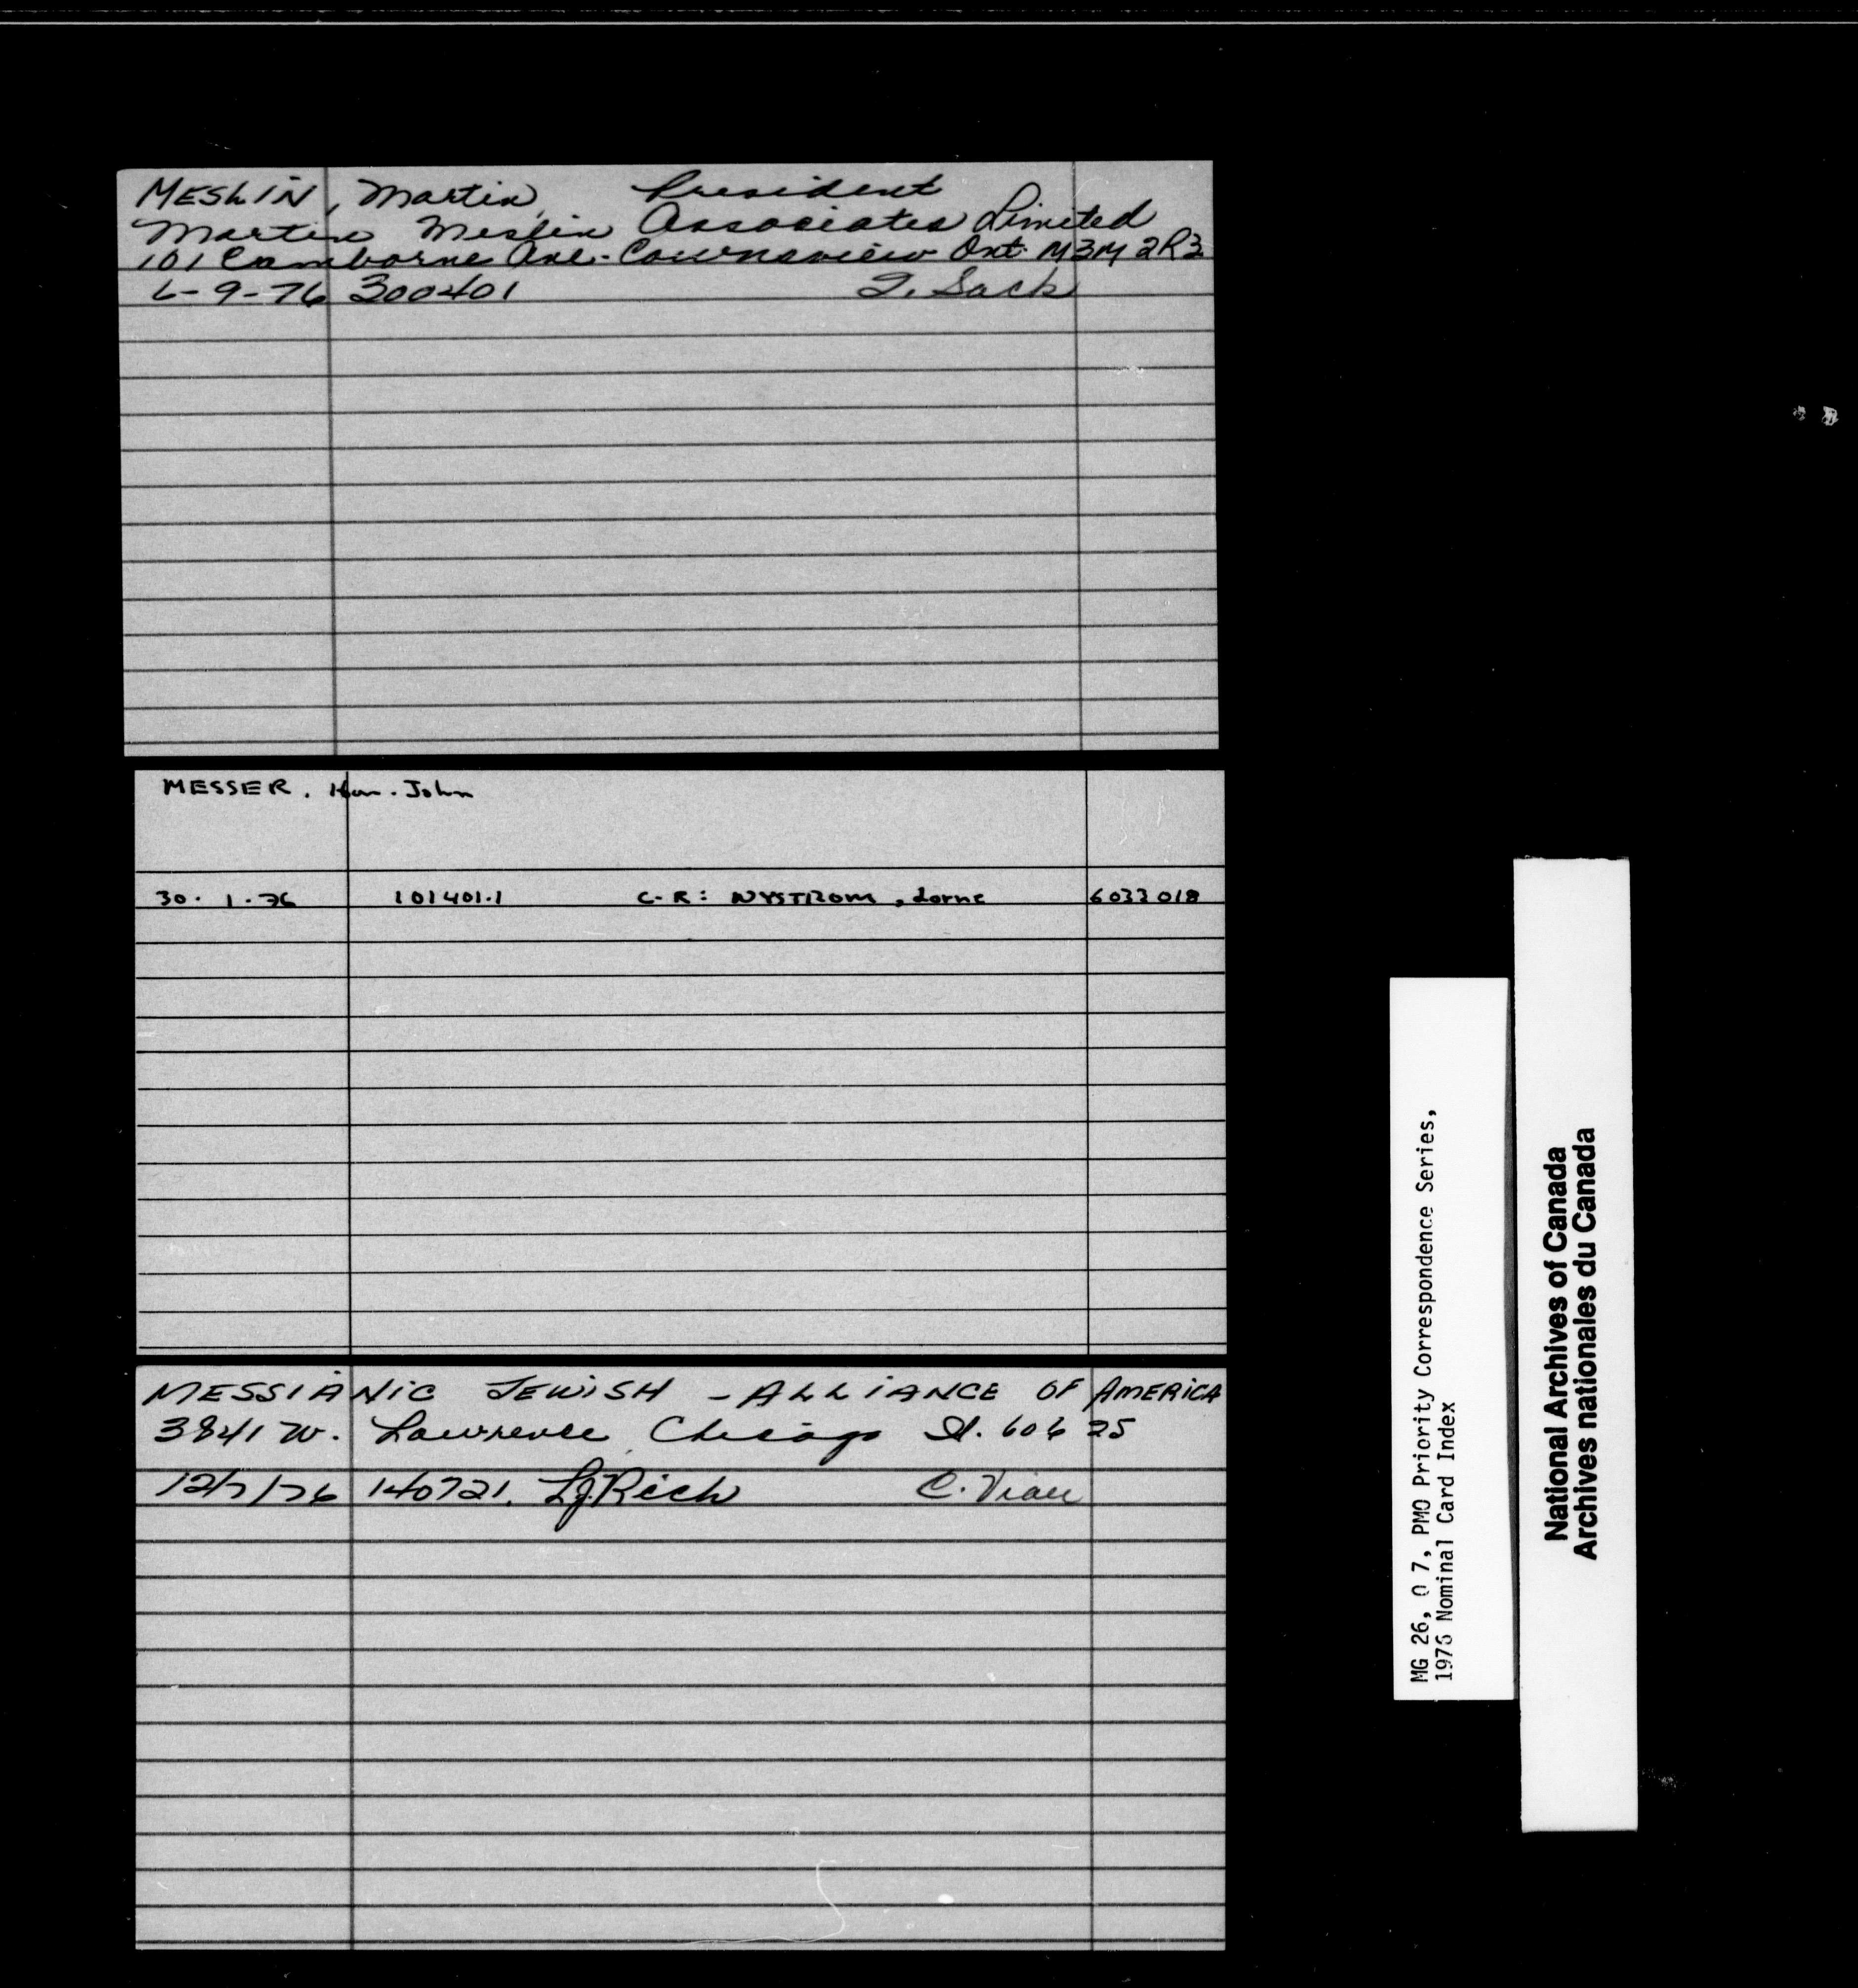 MESLIN, Martin, President
Martin Meslin Associates Limited
101 Camborne Ave. Downsview Ont. M3M 2R3
6-9-76 300401 I. Sack
MESSER. Hon. John
30. 1. 76 101401.1 C-R: NYSTROM, Lorne 6033018
MESSIANIC JEWISH - ALLIANCE OF AMERICA
3841 W. Lawrence, Chicago Il. 60625
12/7/76 140721. LJ. Rich C. Viau
MG 26, O 7, PMO Priority Correspondence Series,
1976 Nominal Card Index
National Archives of Canada
Archives nationales du Canada